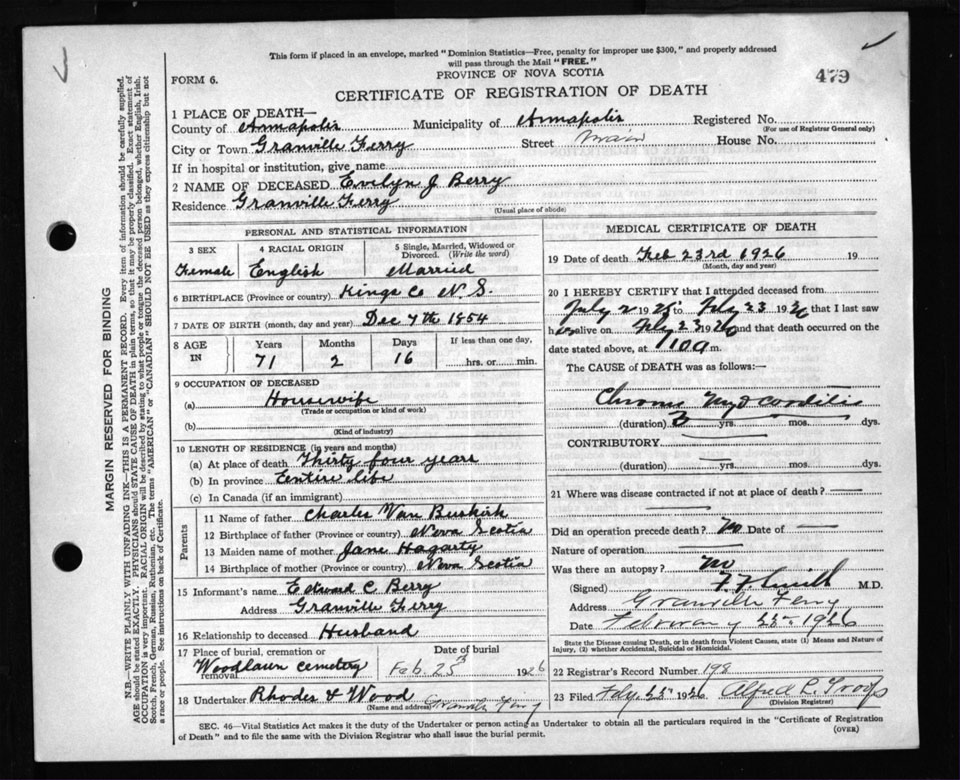 This form if placed in an envelope, marked "Dominion Statistics—Free, penalty for improper use $300," and properly addressed
will pass through the Mail "FREE."
FORM 6.
PROVINCE OF NOVA SCOTIA
479
CERTIFICATE OF REGISTRATION OF DEATH
1 PLACE OF DEATH—
County of Annapolis Municipality of Annapolis Registered No.
(For use of Registrar General only)
City or Town Granville Ferry Street Main House No.
If in hospital or institution, give name
2 NAME OF DECEASED Evelyn J Berry
Residence Granville Ferry
(Usual place of abode)
PERSONAL AND STATISTICAL INFORMATION
3 SEX 4 RACIAL ORIGIN 5 Single, Married, Widowed or
Divorced. (Write the word)
Female English Married
6 BIRTHPLACE (Province or country) Kings Co N.S.
7 DATE OF BIRTH (month, day and year) Dec 7th 1854
8 AGE IN Years Months Days If less than one day,
71 2 16 hrs. or min.
9 OCCUPATION OF DECEASED
(a) Housewife
(Trade or occupation or kind of work)
(b)
(Kind of industry)
10 LENGTH OF RESIDENCE (in years and months)
(a) At place of death Thirty four years
(b) In province Entire life
(c) In Canada (if an immigrant)
Parents
11 Name of father Charles Van Buskirk
12 Birthplace of father (Province or country) Nova Scotia
13 Maiden name of mother Jane Hagarty
14 Birthplace of mother (Province or country) Nova Scotia
15 Informant's name Edward C Berry
Address Granville Ferry
16 Relationship to deceased Husband
17 Place of burial, cremation or
removal Woodlawn cemetery
Date of burial
Feb. 25th 1926
18 Undertaker Rhodes & Wood Granville Ferry
(Name and address)
MEDICAL CERTIFICATE OF DEATH
19 Date of death Feb 23rd 1926 19
(Month, day and year)
20 I HEREBY CERTIFY that I attended deceased from
July 2 1925 to Feby 23 1926 that I last saw
her alive on Feby 23 1926 and that death occurred on
date stated above, at m.
The CAUSE of DEATH was as follows:—
Chronic Myocarditis
(duration) 3 yrs. mos. dys.
CONTRIBUTORY
(duration) yrs. mos. dys.
21 Where was disease contracted if not at place of death?
Did an operation precede death? No Date of
Nature of operation
Was there an autopsy? No
(Signed) Smith M.D.
Address Granville Ferry
Date February 1926
State the Disease causing Death, or in death from Violent Causes, state (1) Means and Nature of
Injury, (2) whether Accidental, Suicidal or Homicidal.
22 Registrar's Record Number 198
23 Filed Feby 1926 Alfred L.
(Division Registrar)
SEC. 46—Vital Statistics Act makes it the duty of the Undertaker or person acting as Undertaker to obtain all the particulars required in the "Certificate of Registration
of Death" and to file the same with the Division Registrar who shall issue the burial permit.
(OVER)
MARGIN RESERVED FOR BINDING
N.B.—WRITE PLAINLY WITH UNFADING INK—THIS IS A PERMANENT RECORD. Every item of information should be carefully supplied.
AGE should be stated EXACTLY. PHYSICIANS should STATE CAUSE OF DEATH in plain terms, so that it may be properly classified. Exact statement of
OCCUPATION is very important. RACIAL ORIGIN will be described by stating to what people or tongue the deceased person belonged, whether English, Irish,
Scotch, French, German, Russian, Ruthenian, etc. The terms "AMERICAN" or "CANADIAN" SHOULD NOT BE USED as they express citizenship but not
a race or people. See instructions on back of Certificate.